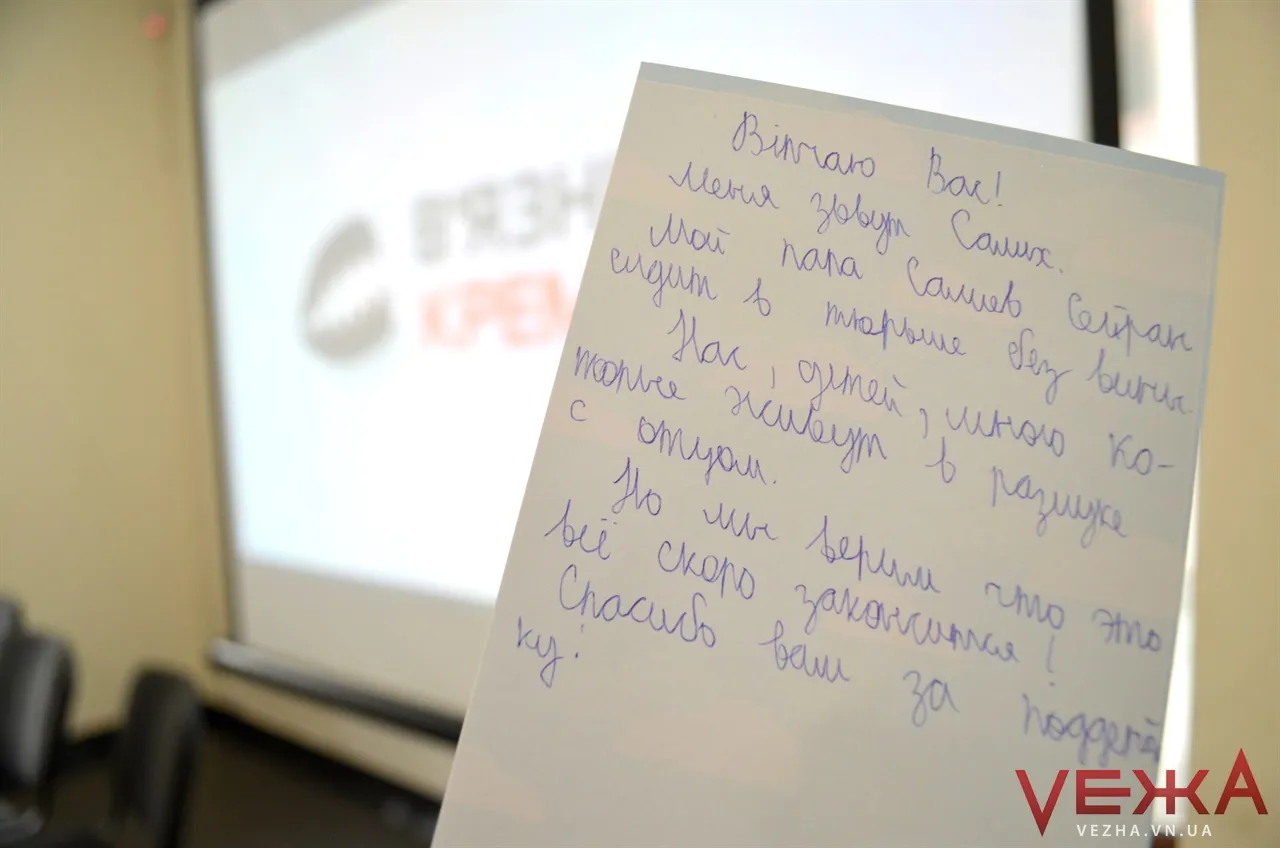 В'ЯЗН
КРЕМ
Вітчаю Вас!
Меня зовут Салих.
Мой папа Салиев Сейран
сидит в тюрьме без вины.
Нас, детей, много ко-
торые живут в разлуке
с отцом.
Но мы верим что это
всё скоро закончится!
Спасибо вам за поддерж
ку!
VЕЖА
VEZHA.VN.UA